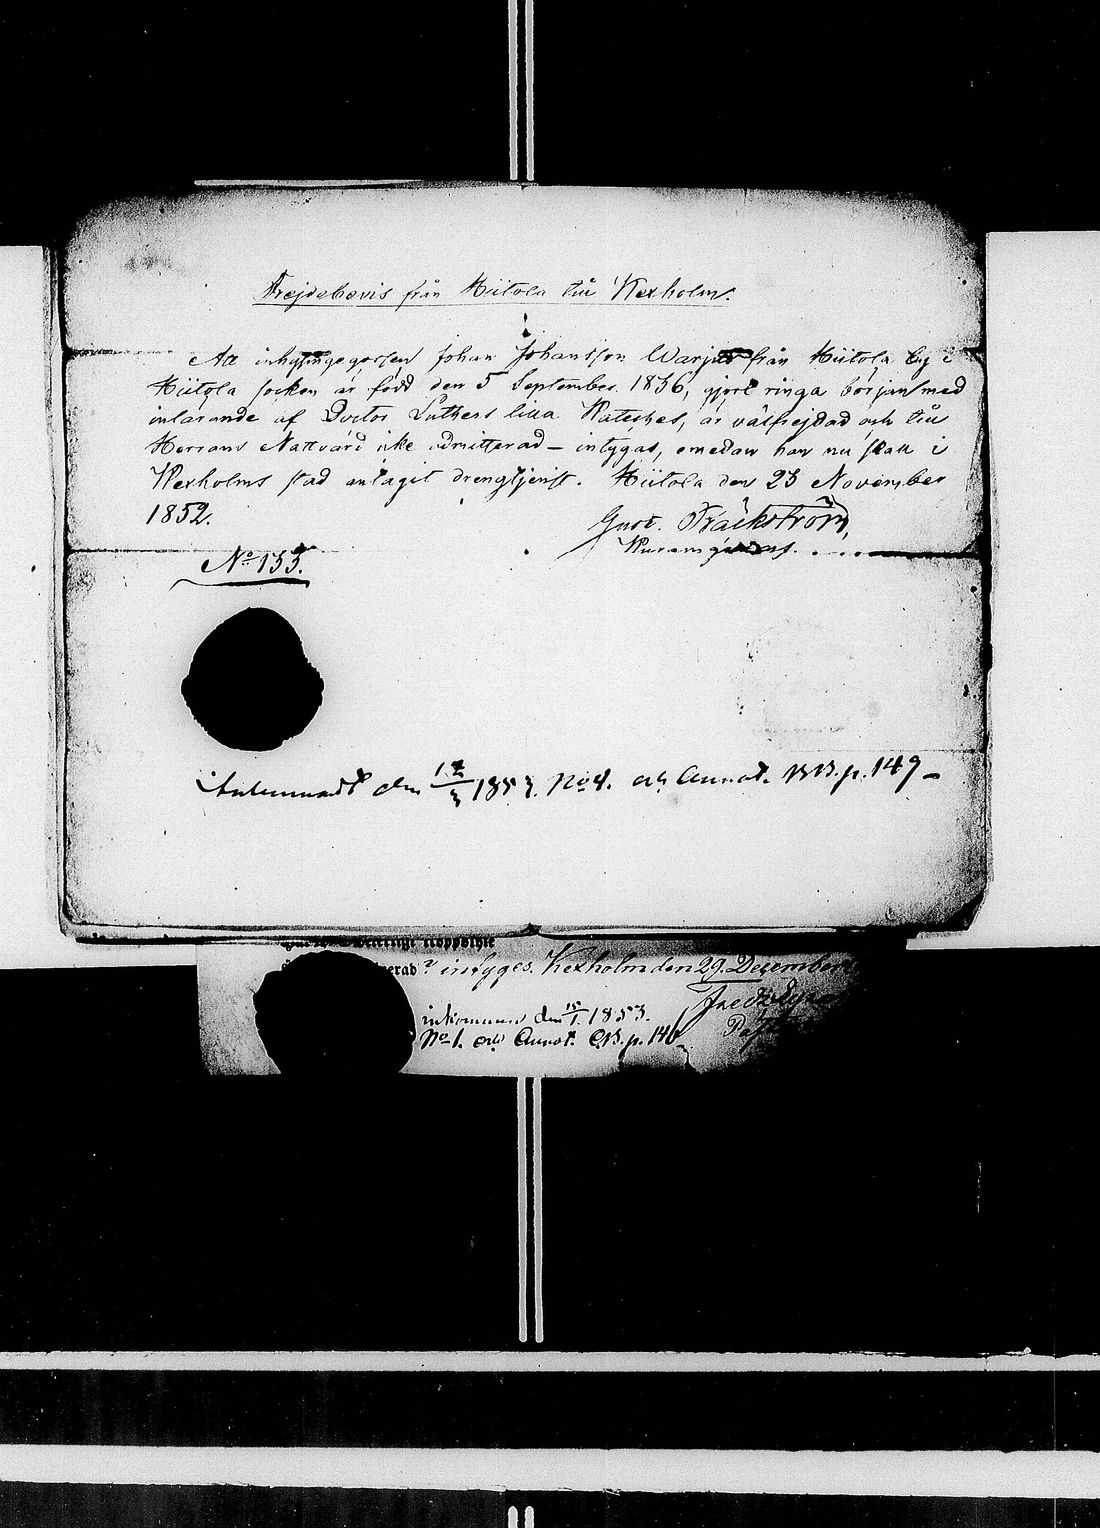 Frejdebevis från Hiitola till Kexholm.
Att inhysingegossen Johan Johansson Warjus från Hiitola by i
Hiitola socken är född den 5 September 1836, gjort ringa början med
inlärande af Doctor Luthers lilla Kateches, är välfrejdad och till
Herrans Nattvard icke admitterad – intygas, emedan han nu skall i
Kexholms stad antagit drengtjenst. Hiitola den 23 November
1852.
Gust. Fräckström,
No 133.
Inlemnadt den 12/3 1853. No 4. och Annot. p. 149 –
intyges. Kexholm den 29 December
inkommen den 15/1 1853.
No 1. och Annot. p. 146